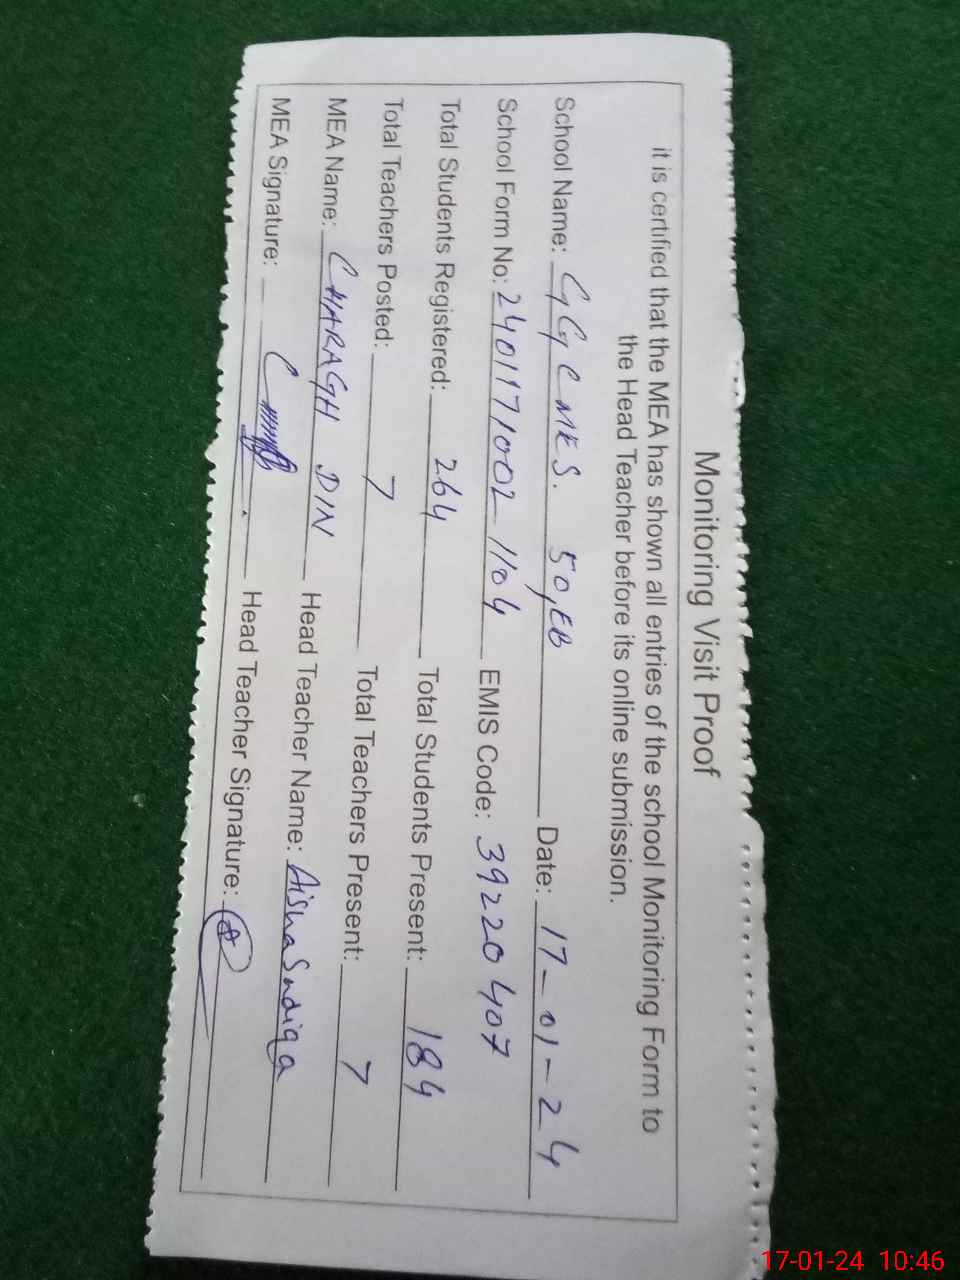 Monitoring Visit Proof
it is certified that the MEA has shown all entries of the school Monitoring Form to
the Head Teacher before its online submission.
School Name: GGCMES. 50,EB Date: 17-01-24
School Form No: 2401171002-1104 EMIS Code: 39220407
Total Students Registered: 264 Total Students Present: 184
Total Teachers Posted: 7 Total Teachers Present: 7
MEA Name: CHARAGH DIN Head Teacher Name: Aisha Sadiqa
MEA Signature: Head Teacher Signature:
17-01-24 10:46